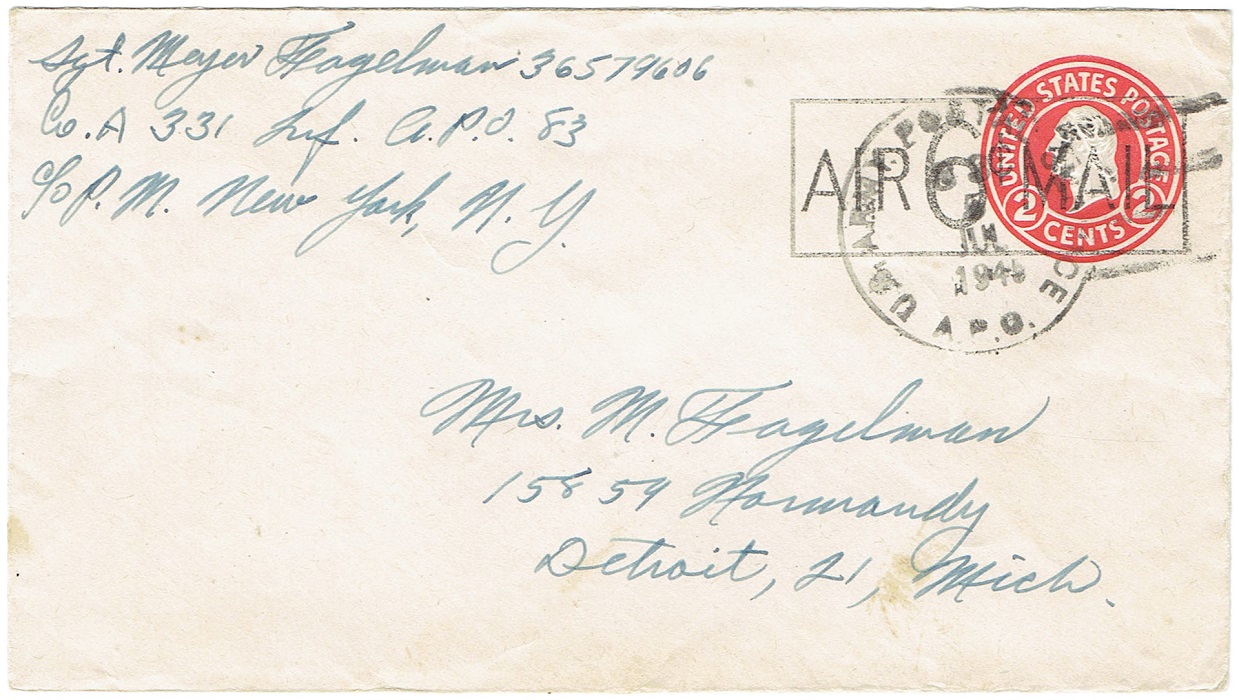 Sgt. Meyer Fagelman 36579606
Co. A 331 Inf. A.P.O. 83
c/o P.M. New York, N.Y.
UNITED STATES POSTAGE
2 CENTS 2
AIR 6 MAIL
U.S. ARMY POSTAL
A.P.O.
JUL
Mrs. M. Fagelman
15859 Normandy
Detroit, 21, Mich.